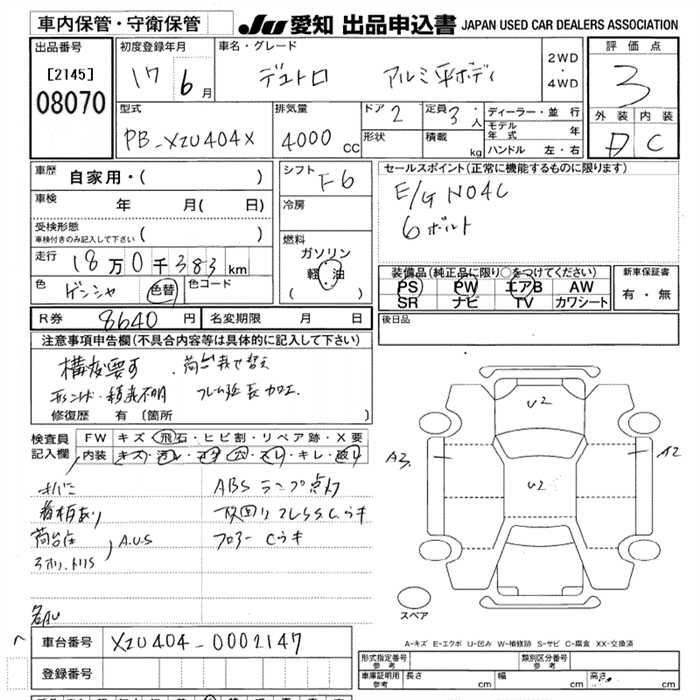 車内保管・守衛保管
JU 愛知 出品申込書 JAPAN USED CAR DEALERS ASSOCIATION
出品番号
[2145]
08070
初度登録年月
17 6月
車名・グレード
デュトロ アルミ平ボディ
2WD
・
4WD
評価点
3
外装 内装
D C
型式
PB-XZU404X
排気量
4000cc
ドア 2
形状
定員 3・人
積載 kg
ディーラー・並行
モデル年式 年
ハンドル 左・右
車歴 自家用・( )
車検 年 月( 日)
受検形態
車検付きのみ記入して下さい ( )
走行 18万0千383km
色 ゲンシャ 色替 色コード
シフト F6
冷房
燃料
ガソリン
軽・油
( )
セールスポイント(正常に機能するものに限ります)
E/G N04C
6ボルト
装備品(純正品に限り○をつけてください)
PS PW エアB AW
SR ナビ TV カワシート
新車保証書
有・無
R券 8640円 名変期限 月 日
後日品
注意事項申告欄(不具合内容等は具体的に記入して下さい)
構変要す 荷台載せ替え
積載不明 フレーム延長加工
修復歴 有 〔箇所 〕
検査員
記入欄
FW キズ・飛石・ヒビ割・リペア跡・X要
内装 キズ・汚レ・コゲ・穴・スレ・キレ・破り
サバミ ABSランプ点灯
看板あり 下回りフレSSCウキ
荷台左 A.U.S フロアーCウキ
A3 U2 U2 A2
スペア
A-キズ E-エクボ U-凹み W-補修跡 S-サビ C-腐食 XX-交換済
車台番号 XZU404-0002147
登録番号
形式指定番号
参考
類別区分番号
参考
車庫証明用
参考
長さ cm 幅 cm 高さ cm